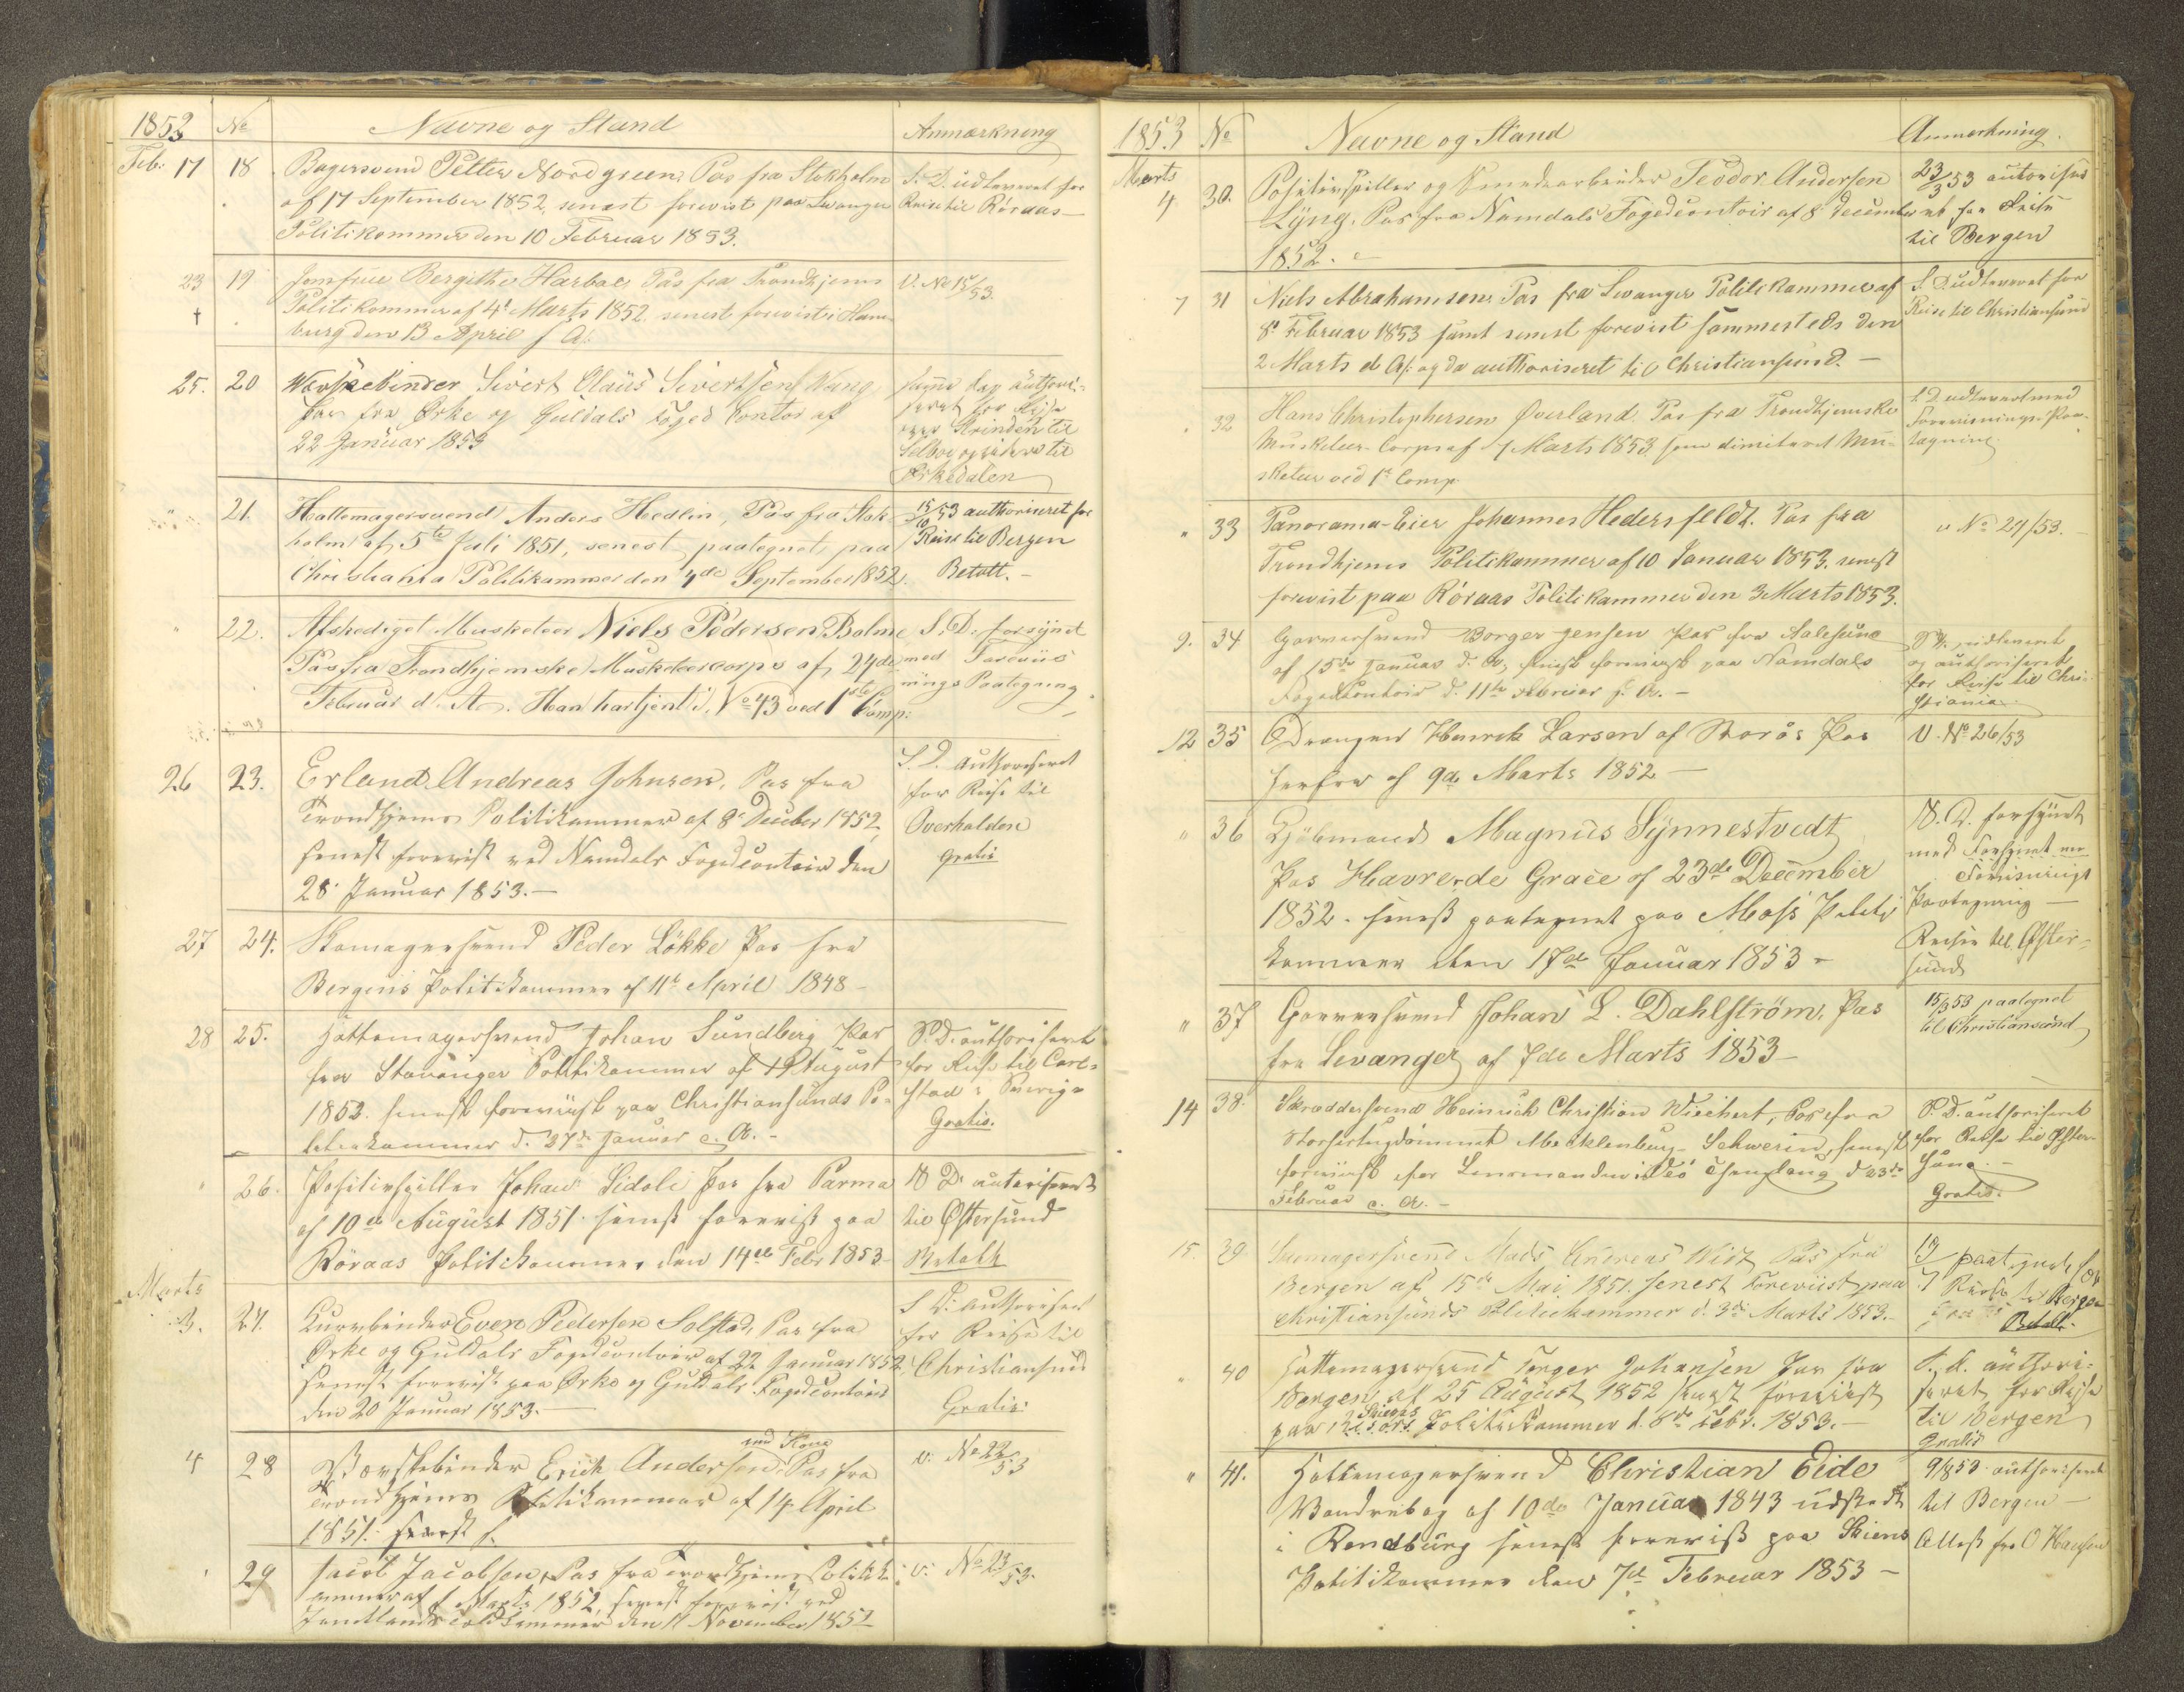 1853 No Navne og Stand Anmærkning
Feb: 17 18 Bagersvend Petter Nordgreen, Pas fra Stokholm
af 17 September 1852, senest forevist paa Levanger
Politikammer den 10 Februar 1853.
S. D. udleveret for
Reise til Röraas
23 19 Jomfrue Bergithe Harboe, Pas fra Trondhjems
Politikammer af 4de Marts 1852, senest forevist i Ham-
burg den 13 April s A:
V. No 15/53.
25. 20 Sivert Olaüs Sivertsen Vang,
Pas fra Orke og Guldals Foged Contor af
22 Januar 1853
samme dag authori-
seret for Rejse
over Strinden til
Selboe og videre til
Orkedalen
" 21. Hattemagersvend Anders Hedlin, Pas fra Stok-
holm af 5te Juli 1851, senest paategnet paa
Christiania Politikammer den 7de September 1852.
15/10 53 authoriseret for
Reise til Bergen
Betalt.
" 22. Afskediget Musketeer Niels Pedersen Bolme
Pas fra Trondhjemske Musketeercorps af 24de
Februar d. A. Han har tjent i No 43 ved 1ste Comp:
S. D. forsÿnet
med Foreviis
nings Paategning
26 23. Erland Andreas Johnsen, Pas fra
Trondhjems Politikammer af 8 Decber 1852,
senest forevist ved Namdals Fogedcontoir den
28 Januar 1853.
S. D. authoriseret
for Reise til
Overhalden
gratis
27 24. Skomagersvend Peder Lökke Pas fra
Bergens Politikammer af 11te April 1848
28 25. Hattemagersvend Johan Sundberg Pas
fra Stavanger Politikammer af August
1852. senest foreviist paa Christiansunds Po-
litikammer d. 27de Januar c. A.
S. D. authoriseret
for Reise til Carl-
stad i Sverige
Gratis.
" 26. Positivspiller Johan Sidoli Pas fra Parma
af 10de August 1851. senest forevist paa
Röraas Politikammer den 14de Febr 1853
S. D. autoriseret
til Östersund
Betalt
Marts
3. 27. Kurvbinder Even Pedersen Solstad, Pas fra
Orke og Guldals Fogedcontoir af 22 Januar 1852
senest forevist paa Orke og Guldals Fogedcontoir
den 20 Januar 1853.
S D. authoriseret
for Reise til
Christiansund
Gratis.
4 28 Börstebinder Erich Andersen, Pas fra
med Kone
Trondhjems Politikammer af 14 April
1851. senest f.
v. No 22/53
" 29 Jacob Jacobsen, Pas fra Trondhjems Politik
ammer af 1 Marts 1852, senest forevist ved
Jemtlands den 11 November 1852
v. No 23/53.
1853 No Navne og Stand Anmerkning.
Marts
4 30. Positivspiller og Smedearbeider Teodor Andersen
Lÿng. Pas fra Namdals Fogedcontoir af 8 december
1852.
23/3 53 autorise
ret for Reise
til Bergen
7 31 Niels Abrahamsen, Pas fra Levanger Politikammer af
8 Februar 1853 samt senest forevist sammesteds den
2 Marts d A: og da authoriseret til Christiansund.
S. D. udleveret for
Reise til Christiansund
" 32 Hans Christophersen Överland. Pas fra Trondhjemske
Musketeer-Corps af 7 Marts 1853, som dimiteret Mu-
sketeer ved 1te Comp.
S. D. udleveret med
Forevisnings-Paa-
tegning.
" 33 Panorama-Eier Johannes Hedersfeldt. Pas fra
Trondhjems Politikammer af 10 Januar 1853. senest
forevist paa Röraas Politikammer den 3 Marts 1853.
v No 24/53.
9. 34 Garversvend Borger Jensen Pas fra Aalesund
af 15de Januar d. A, senest foreviist paa Namdals
Fogedcontoir d. 11te Februar s. A.
S. D. udleveret
og authoriseret
for Reise til Chri-
stiania
12 35 Drengen Henrik Larsen af Storös Pas
herfra af 9de Marts 1852
V. No 26/53
" 36 Magnus Sÿnnestvedt
Pas Havre de Grace af 23de December
1852. senest paategnet paa Moss Politi
kammer den 17de Januar 1853
S. D. forsÿnet
med
Foreisnings
Paategning
Reise til Öster-
sund
" 37 Garversvend Johan L. Dahlström, Pas
fra Levanger af 7de Marts 1853
15/3 53 paategnet
til Christiansund
14 38. Skræddersvend Heinrich Christian Wiechert, Pas fra
Storhertugdömmet Mecklenburg-Schwerin, senest
foreviist for Lensmanden i d 23de
Februar c. A.
S. D. authoriseret
for Reise til Öster-
sund.
Gratis.
15. 39 Mads Andreas Pas fra
Bergen af 15de Mai 1851. senest foreviist paa
Christiansunds Politiekammer d. 3de Marts 1853.
paategnet for
Reise til Bergen
Betalt.
" 40 Hattemagersvend Torger Johansen Pas fra
Bergen af 25 August 1852 senest foreviist
paa Skiens Politikammer d. 8de Febr. 1853.
S. d. authori-
seret for Rejse
til Bergen
gratis
" 41. Hattemagersvend Christian Eide
Vandrebog af 10de Januar 1843 udstedt
i Rendsburg senest forevist paa Skiens
Politikammer den 7de Februar 1853
9/8 53 authoriseret
til Bergen
Attest fra O Hansen